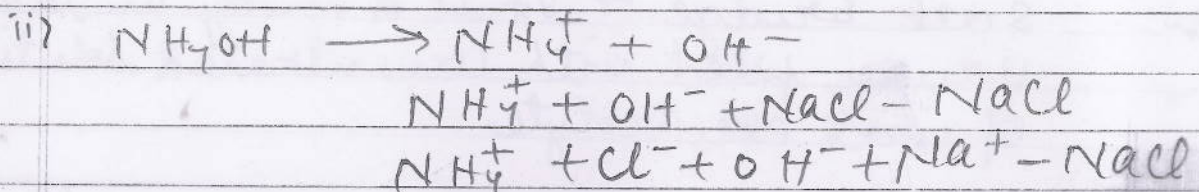 ii) NH₄OH ⟶ NH₄⁺ + OH⁻
NH₄⁺ + OH⁻ + NaCl - NaCl
NH₄⁺ + Cl⁻ + OH⁻ + Na⁺ - NaCl